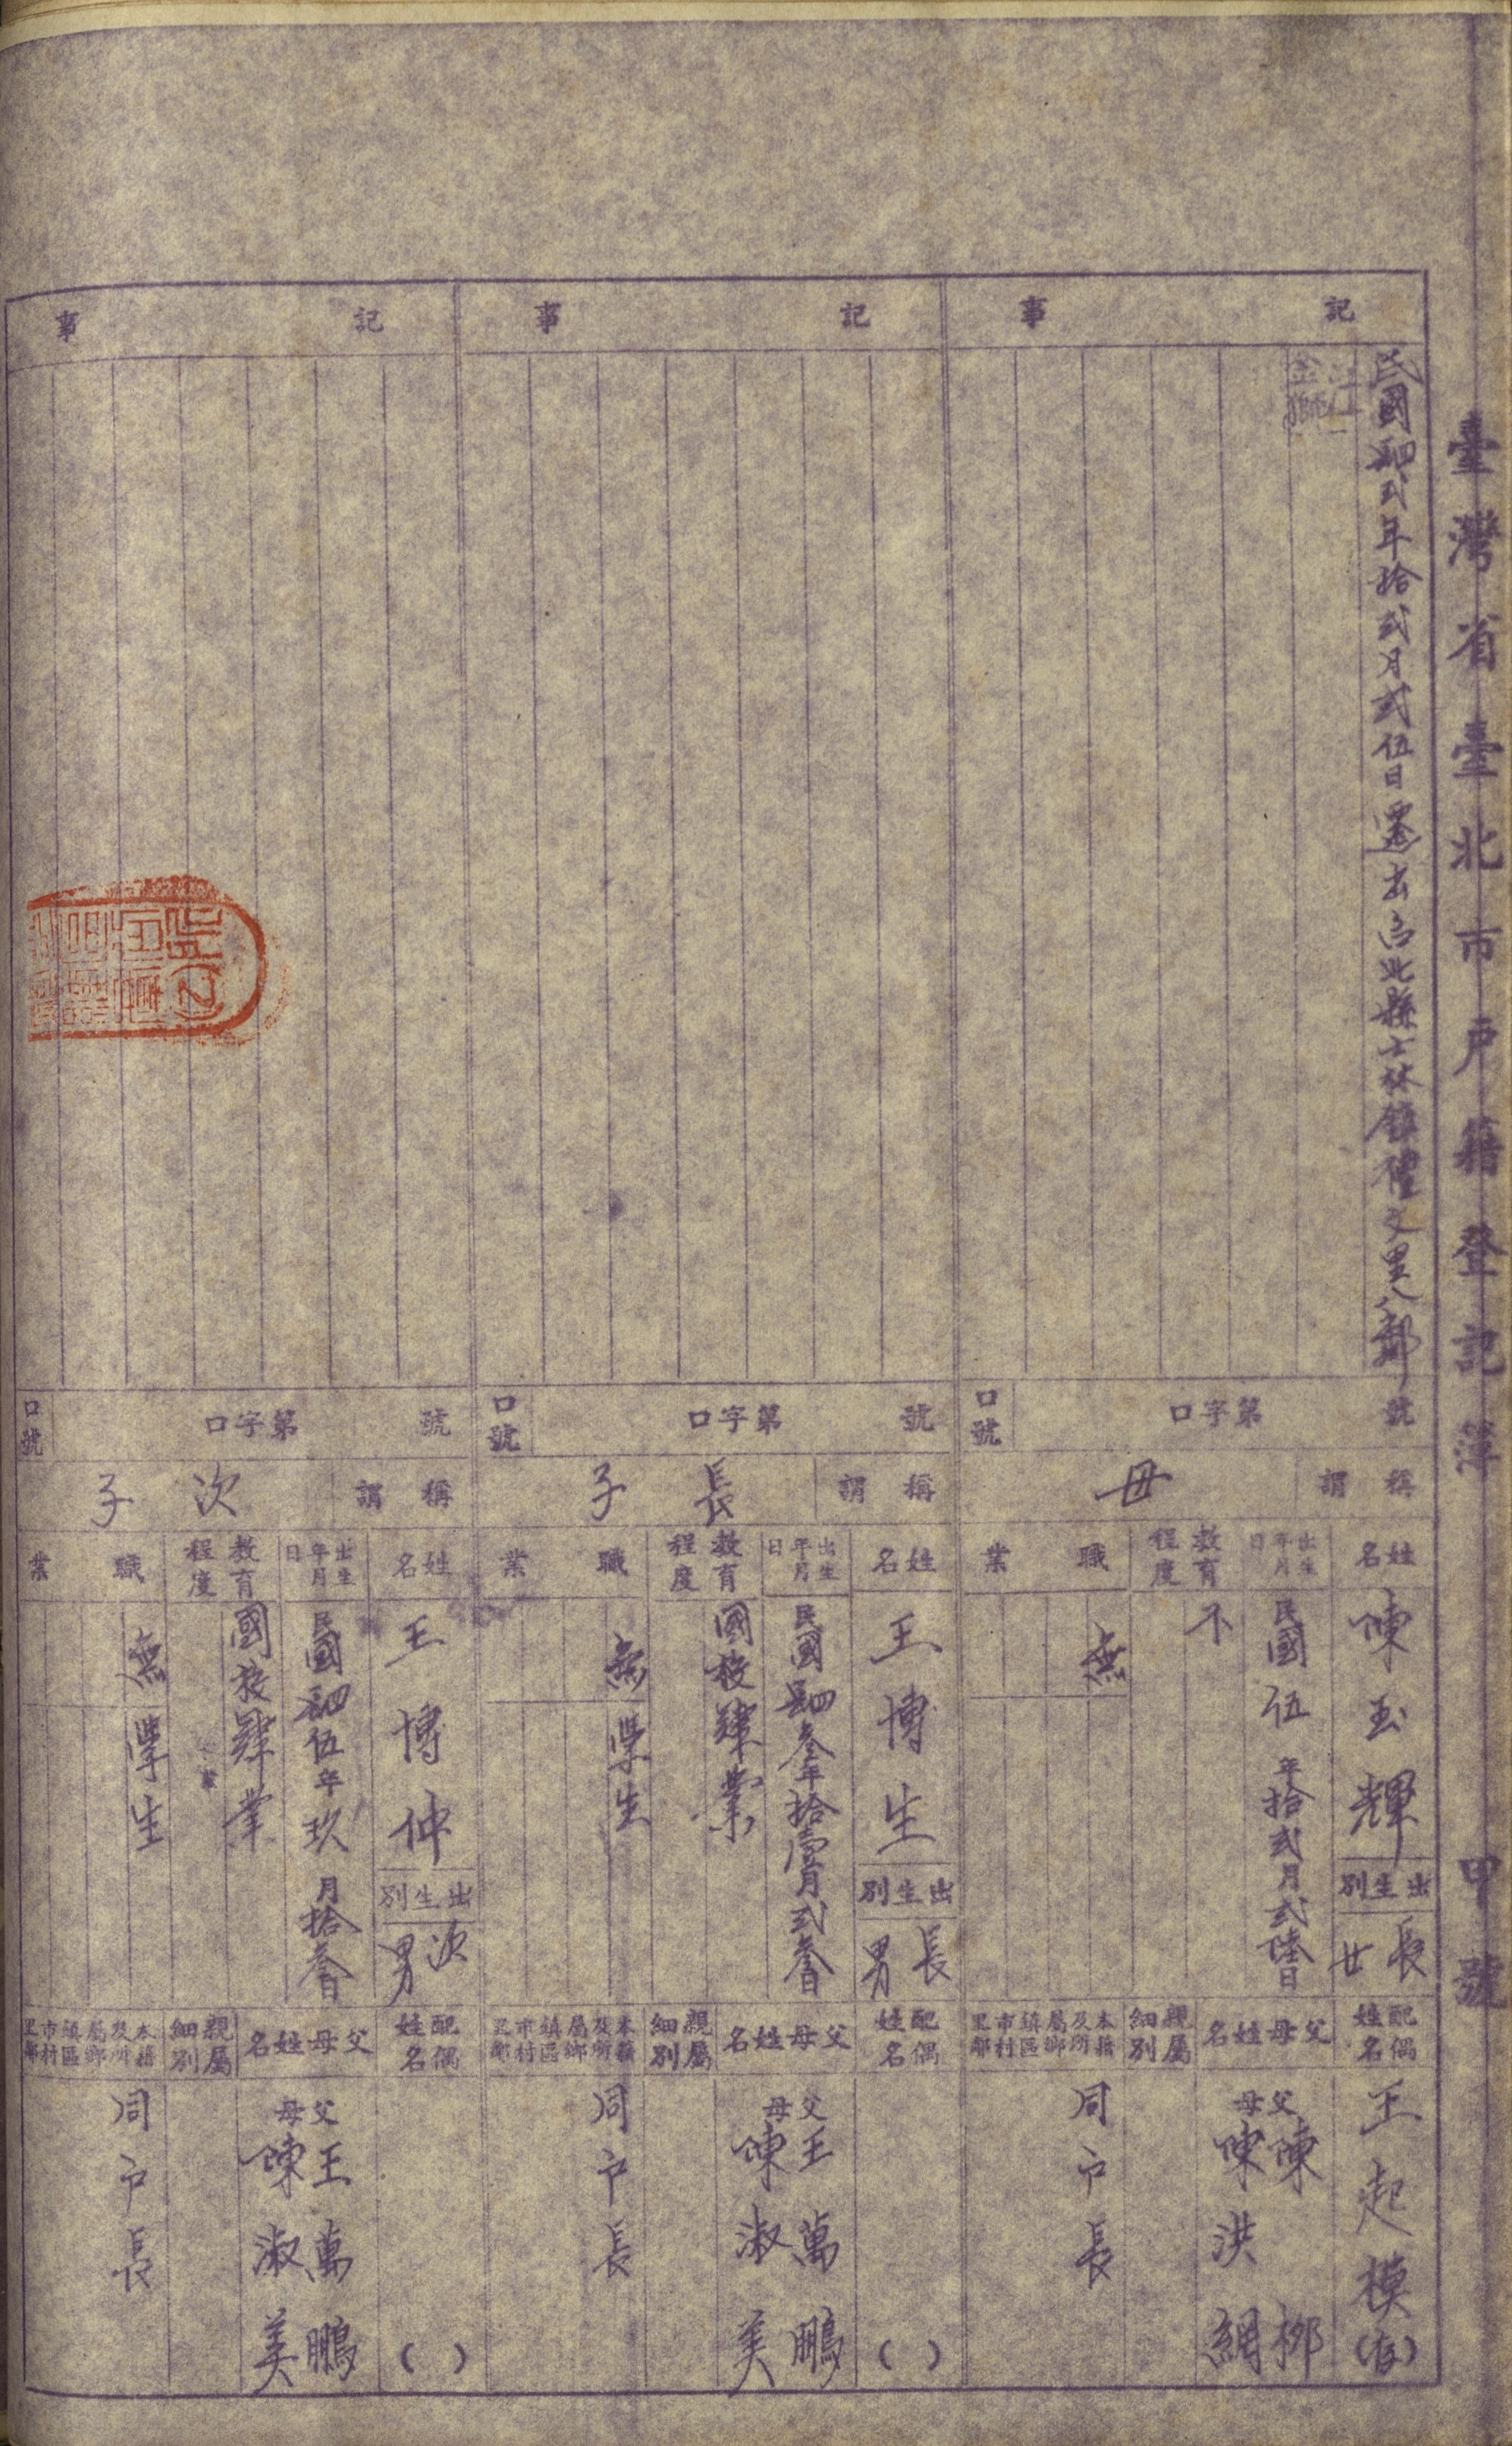 臺灣省臺北市戶籍登記簿
甲號
記事
民國肆貳年拾貳月貳伍日遷出台北縣士林鎮禮文里八鄰
號
口字第
口號
稱謂
母
姓名
陳玉輝
出生別
長女
出生年月日
民國伍年拾貳月貳陸日
教育程度
不
職業
無
配偶姓名
王起模(存)
父母姓名
父 陳柳
母 陳洪綢
親屬細別
本籍及所屬鄉鎮區市村里鄰
同戶長
記事
號
口字第
口號
稱謂
長子
姓名
王博生
出生別
長男
出生年月日
民國肆叁年拾壹月貳叁日
教育程度
國校肄業
職業
無
學生
配偶姓名
( )
父母姓名
父 王萬鵬
母 陳淑美
親屬細別
本籍及所屬鄉鎮區市村里鄰
同戶長
記事
號
口字第
口號
稱謂
次子
姓名
王博仲
出生別
次男
出生年月日
民國肆伍年玖月拾叁日
教育程度
國校肄業
職業
無
學生
配偶姓名
( )
父母姓名
父 王萬鵬
母 陳淑美
親屬細別
本籍及所屬鄉鎮區市村里鄰
同戶長